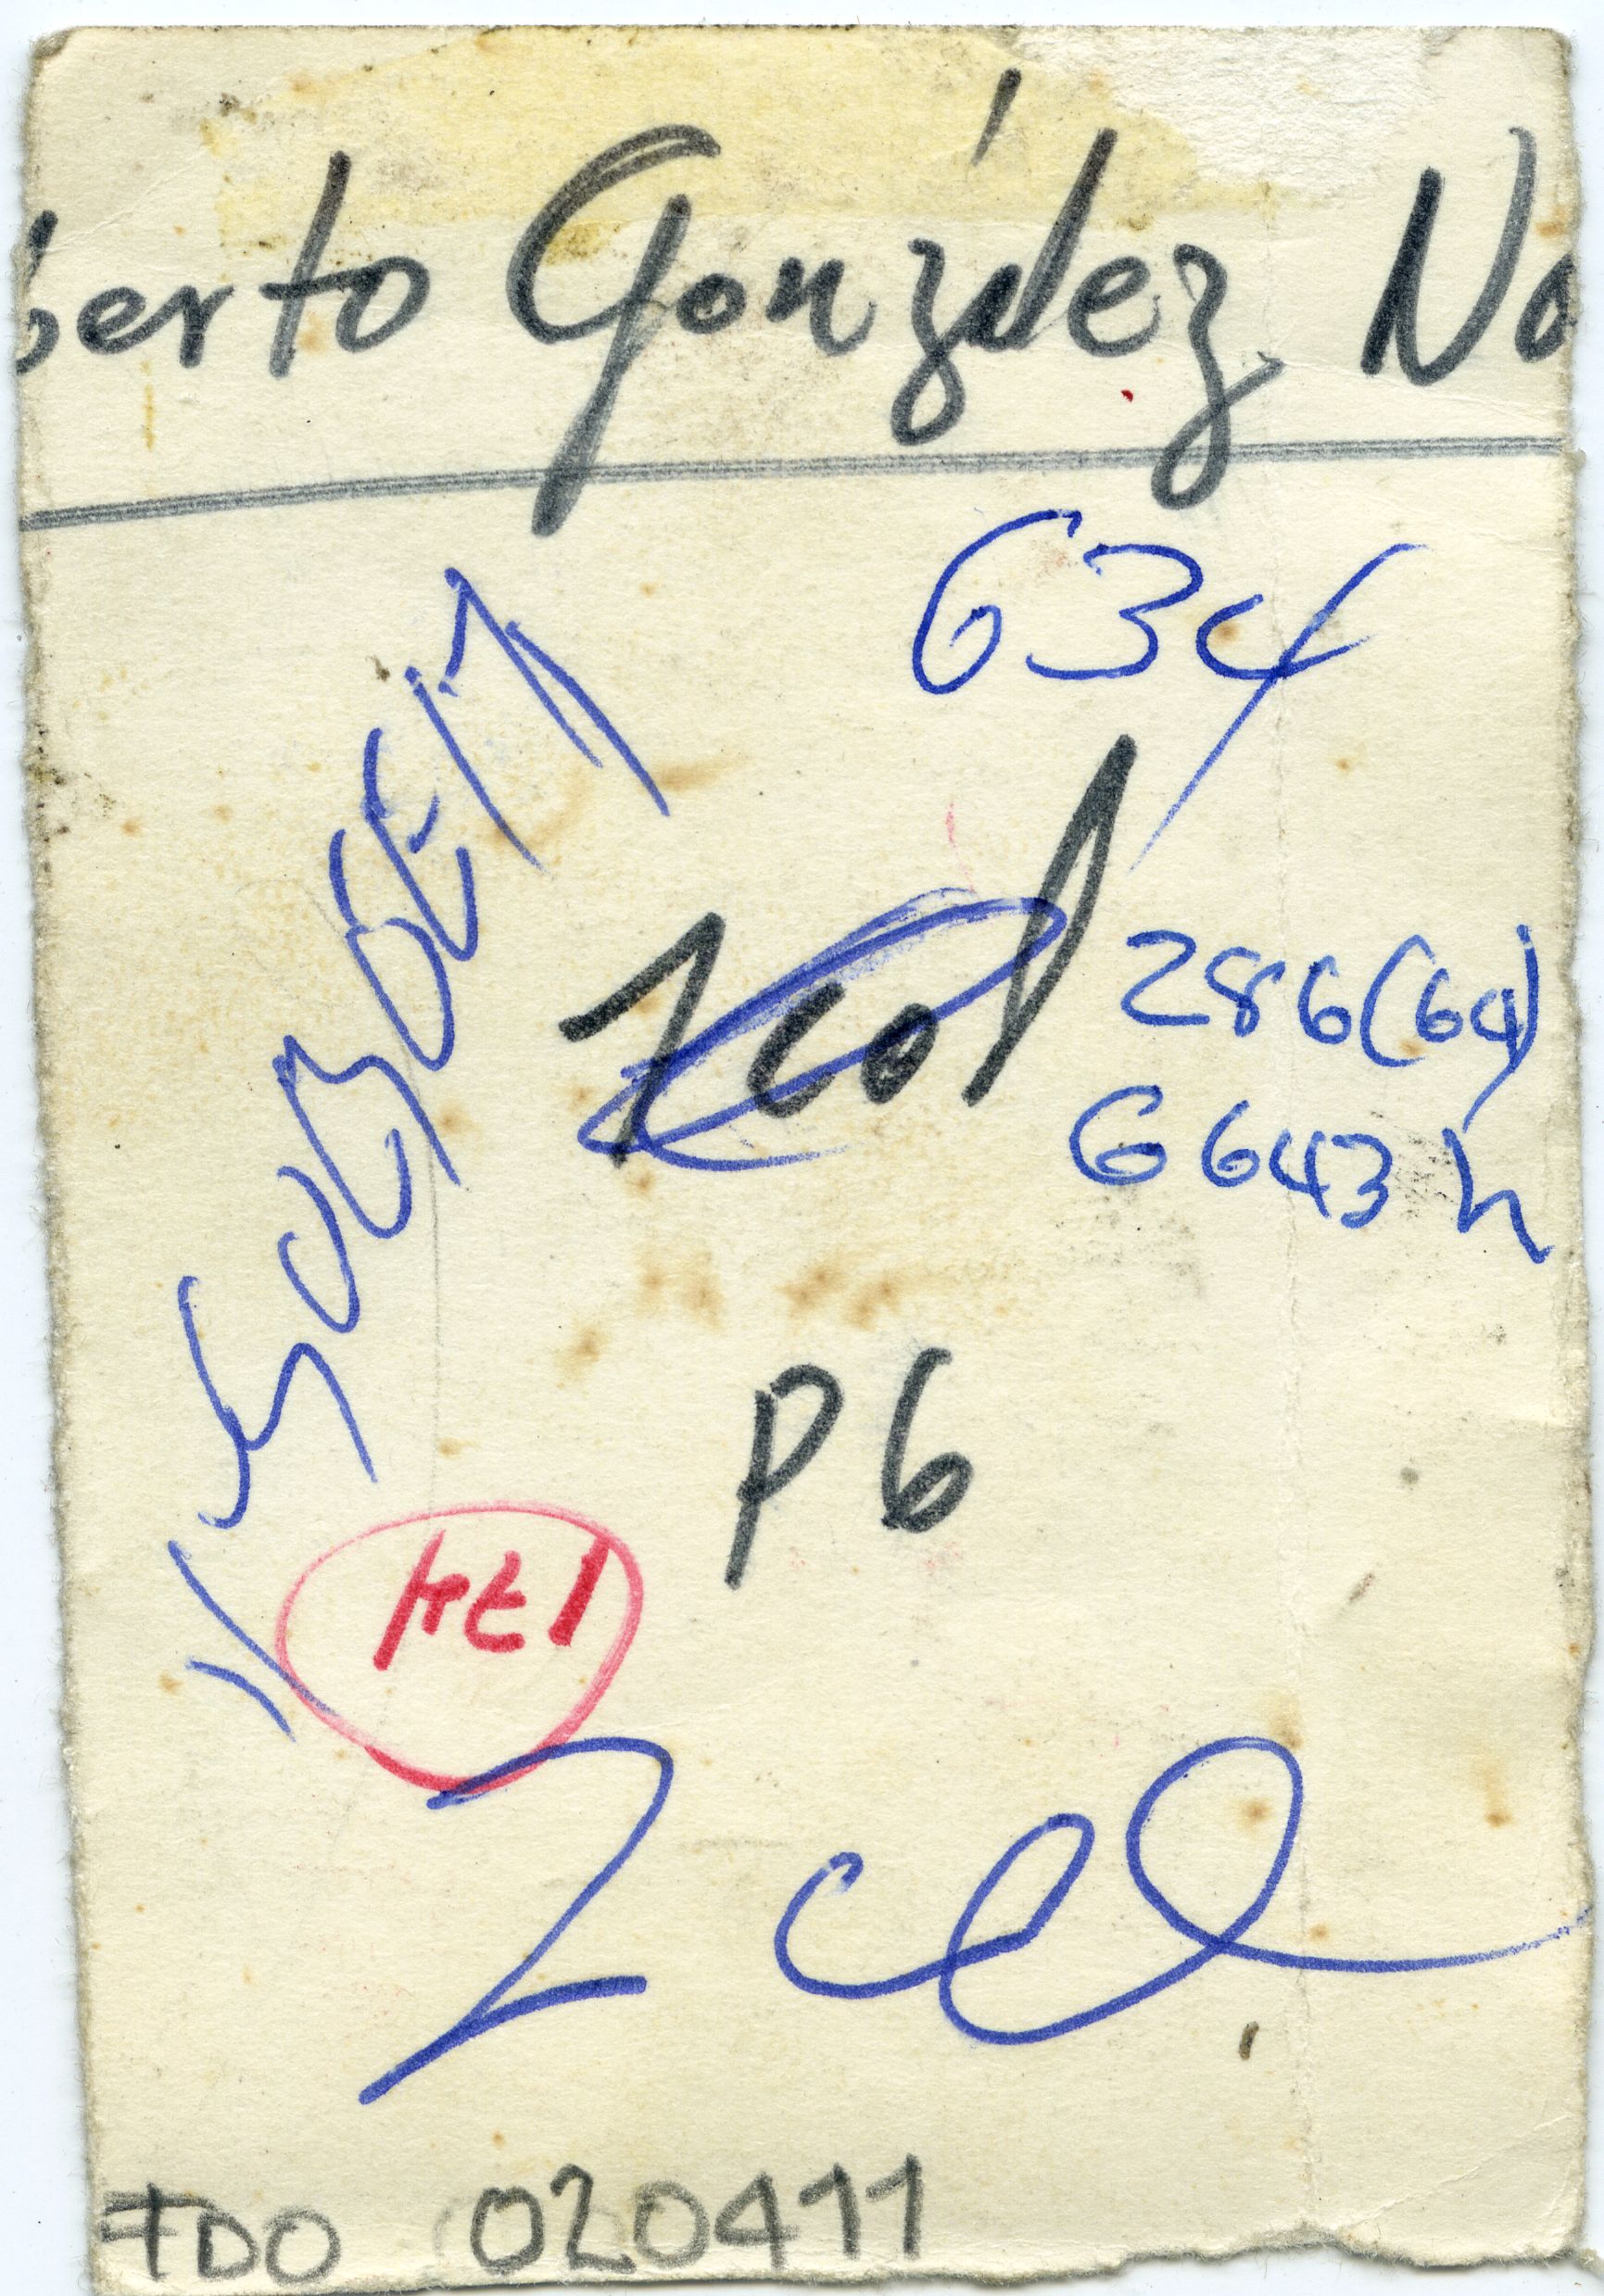 berto González No
634
1 col
286(64)
6643 h
P6
2 col
FDO 020411